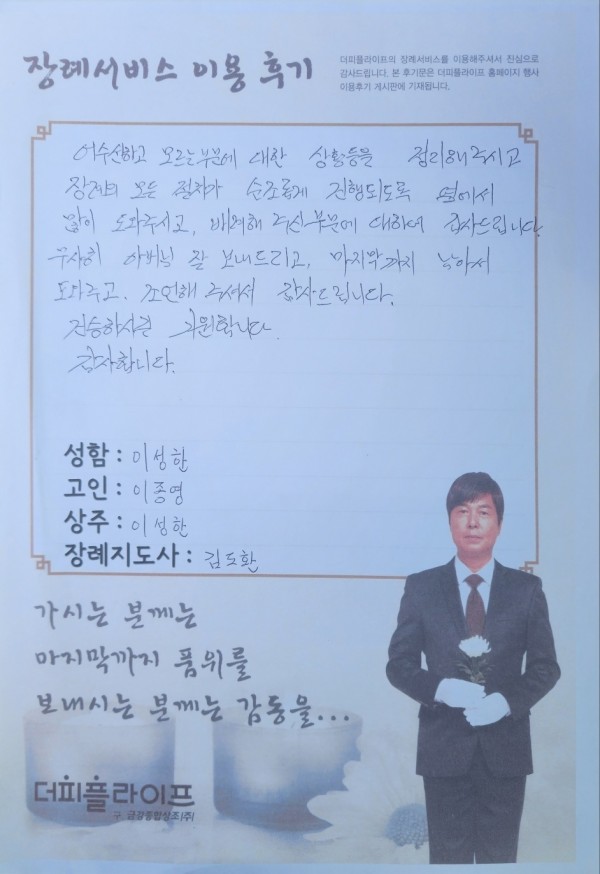 장례서비스 이용 후기
더피플라이프의 장례서비스를 이용해주셔서 진심으로
감사드립니다. 본 후기문은 더피플라이프 홈페이지 행사
이용후기 게시판에 기재됩니다.
어수선하고 모르는부분에 대한 상황등을 정리해 주시고
장례의 모든 절차가 순조롭게 진행되도록 옆에서
많이 도와주시고, 배려해 주신부분에 대하여 감사드립니다.
무사히 아버님 잘 보내드리고, 마지막까지 남아서
도와주고, 조언해 주셔서 감사드립니다.
건승하시길 기원합니다.
감사합니다.
성함 : 이성한
고인 : 이종영
상주 : 이성한
장례지도사 : 김도환
가시는 분께는
마지막까지 품위를
보내시는 분께는 감동을...
더피플라이프
구. 금강종합상조(주)